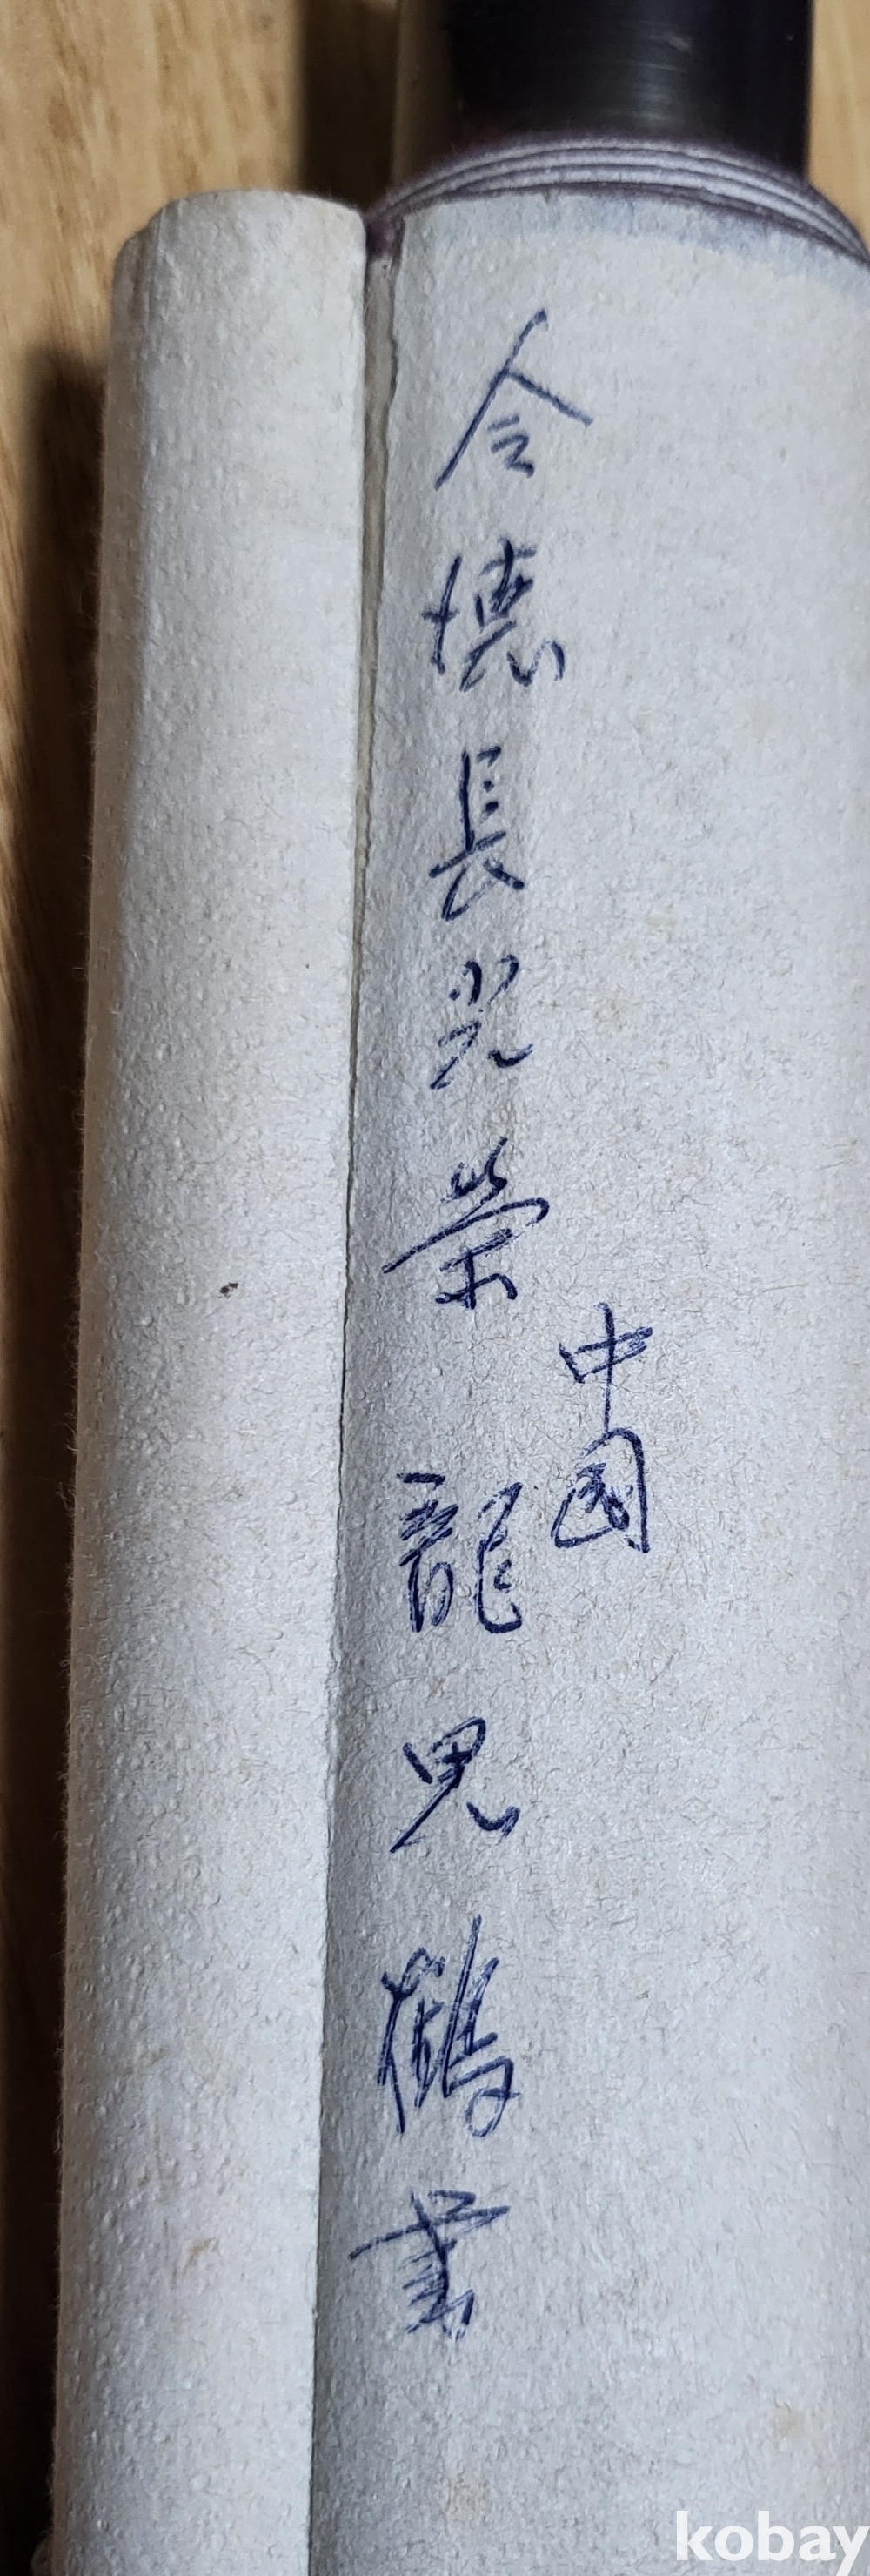 中国
令德長光榮 龍思鶴書
kobay